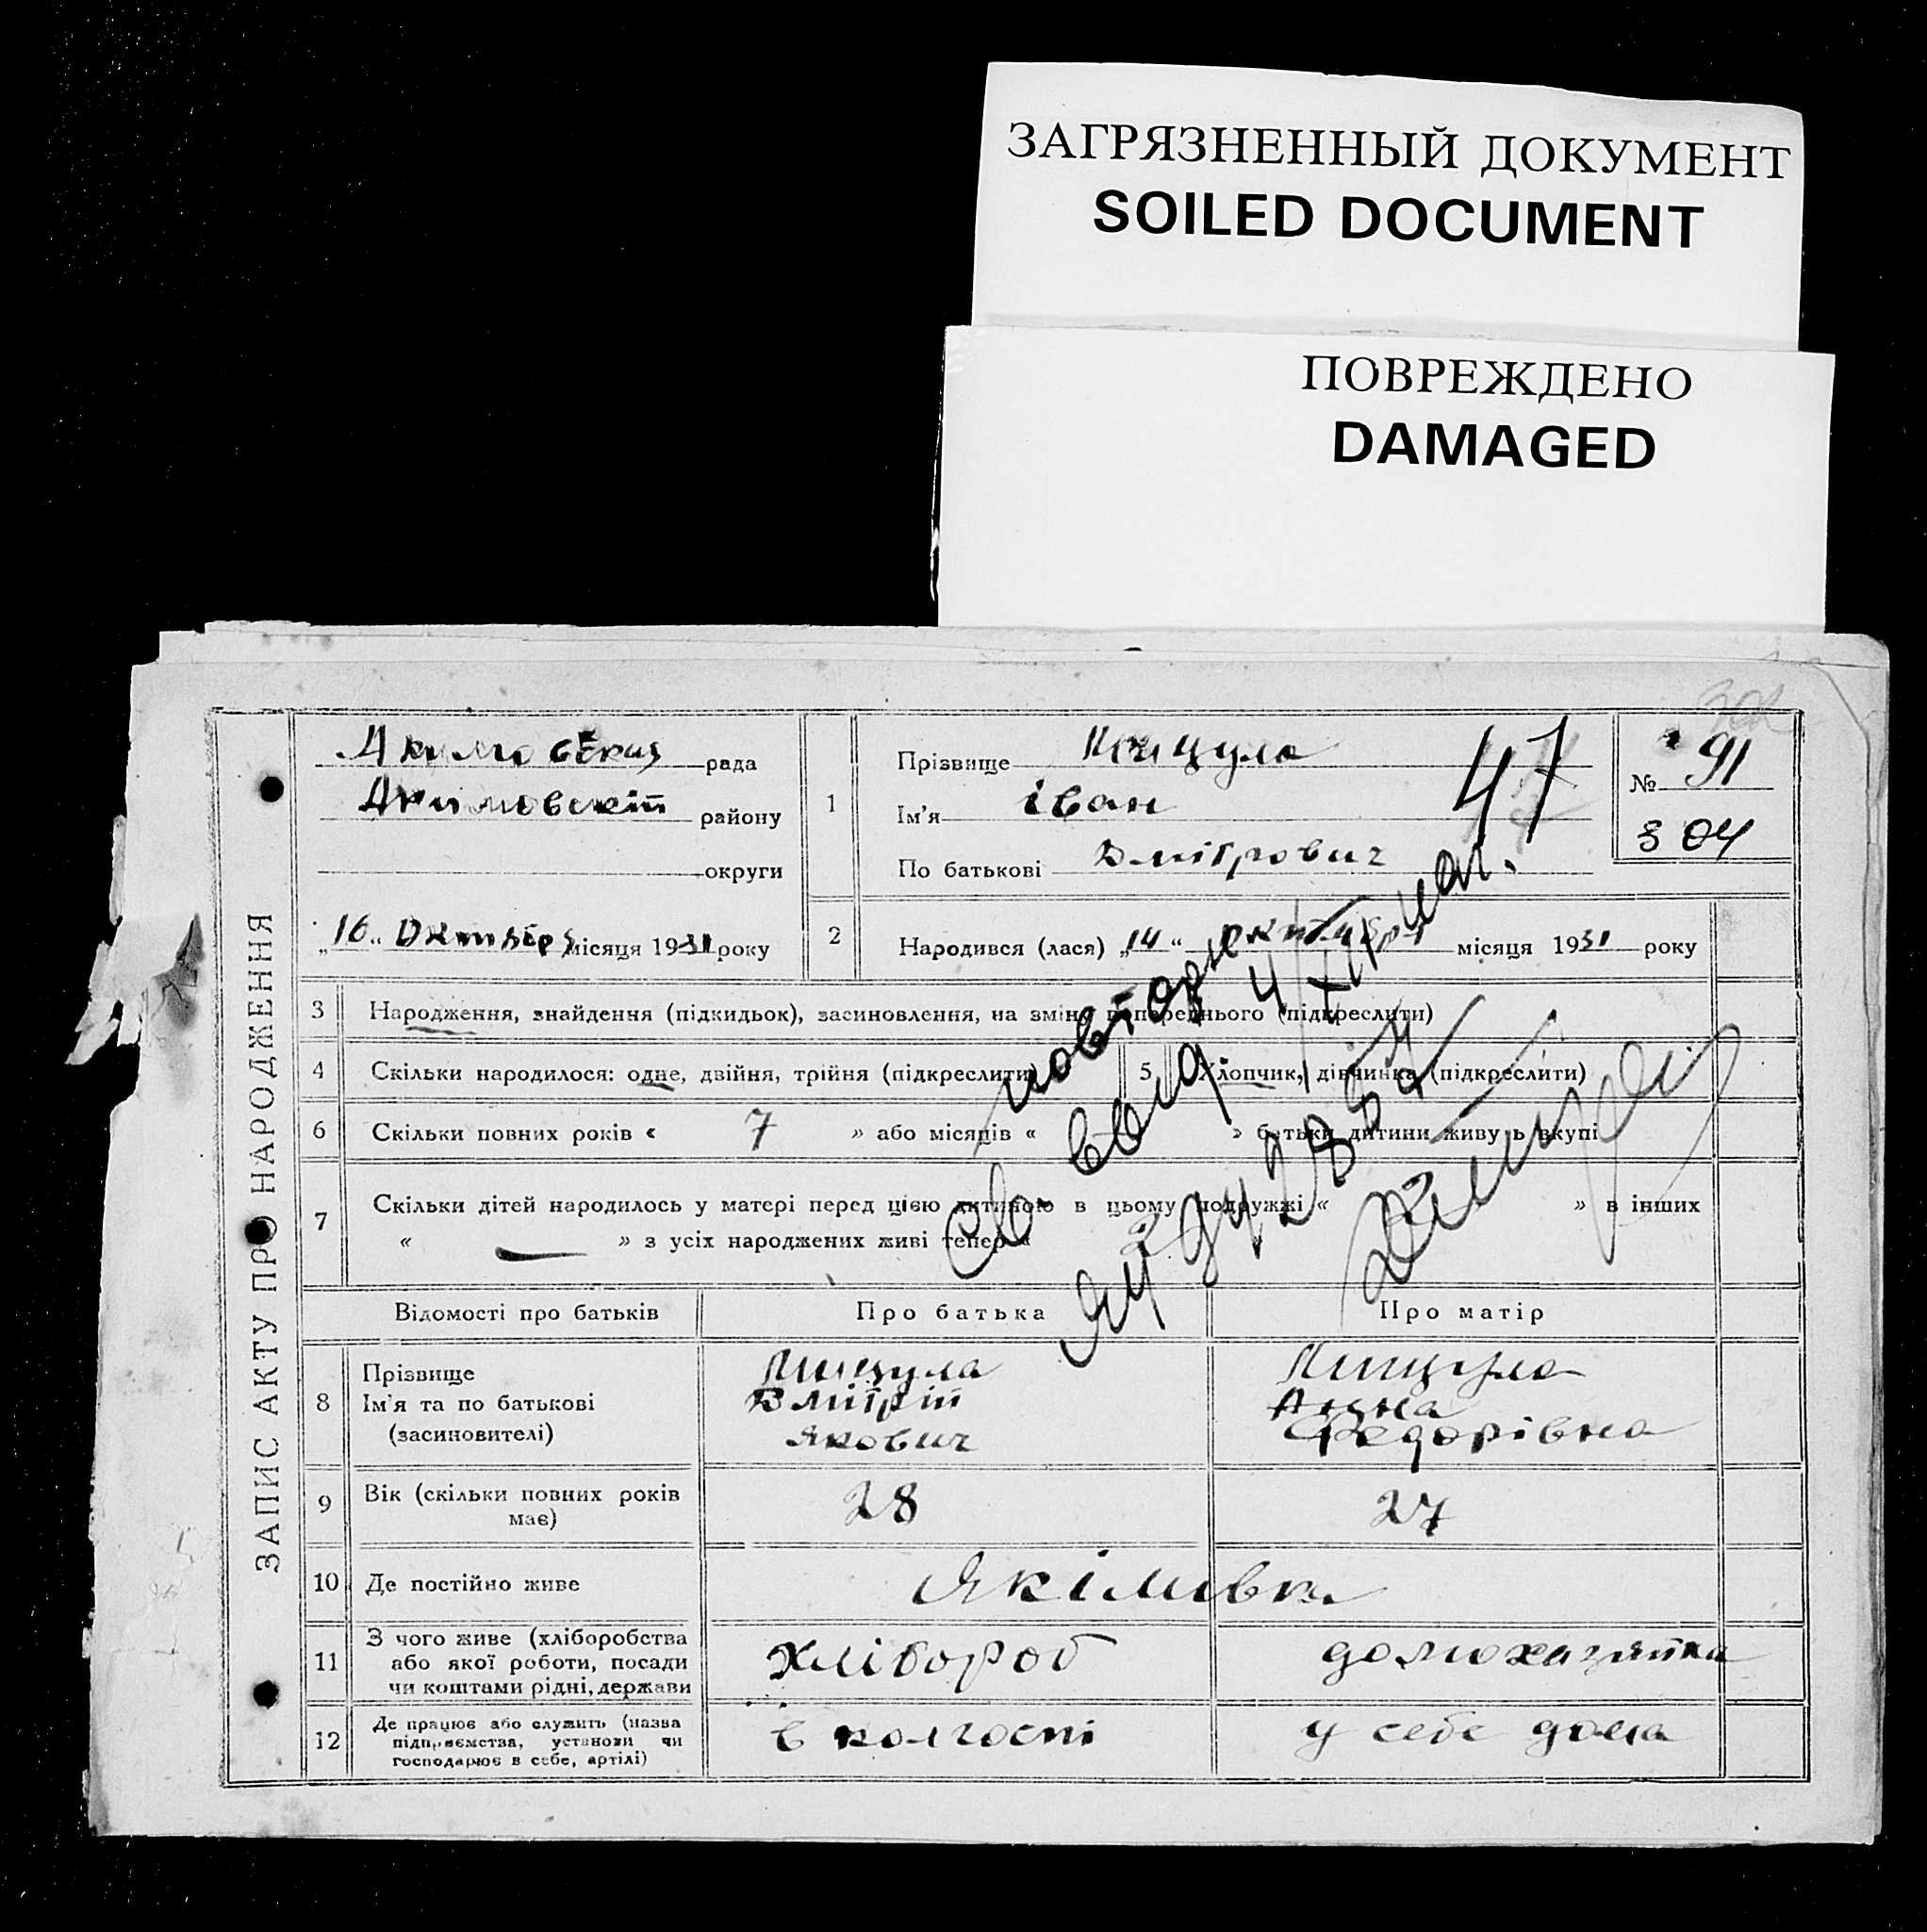 ЗАГРЯЗНЕННЫЙ ДОКУМЕНТ
SOILED DOCUMENT
ПОВРЕЖДЕНО
DAMAGED
ЗАПИС АКТУ ПРО НАРОДЖЕННЯ
рада
Акимовскій району
округи
„16“ Октября місяця 1931 року
1
Прізвище
Ім'я іван
По батькові Дмітрович
47
№ 91
304
2
Народився (лася) „14“ октября місяця 1931 року
3 Народження, знайдення (підкидьок), засиновлення, на зміну попереднього (підкреслити)
4 Скільки народилося: одне, двійня, трійня (підкреслити)
5 Хлопчик, дівчинка (підкреслити)
6 Скільки повних років « 7 » або місяців « » батьки дитини живуть вкупі
7 Скільки дітей народилось у матері перед цією дитиною в цьому подружжі « » в інших
« — » з усіх народжених живі тепер «
повторно
Відомості про батьків Про батька Про матір
8 Прізвище
Ім'я та по батькові
(засиновителі)
Дмітрій
Якович
Анна
Федорівна
9 Вік (скільки повних років
має)
28 27
10 Де постійно живе Якімивка
11 З чого живе (хліборобства
або якої роботи, посади
чи коштами рідні, держави
хлібороб домохазяйка
12 Де працює або служить (назва
підприємства, установи чи
господарює в себе, артілі)
в колгоспі у себе дома